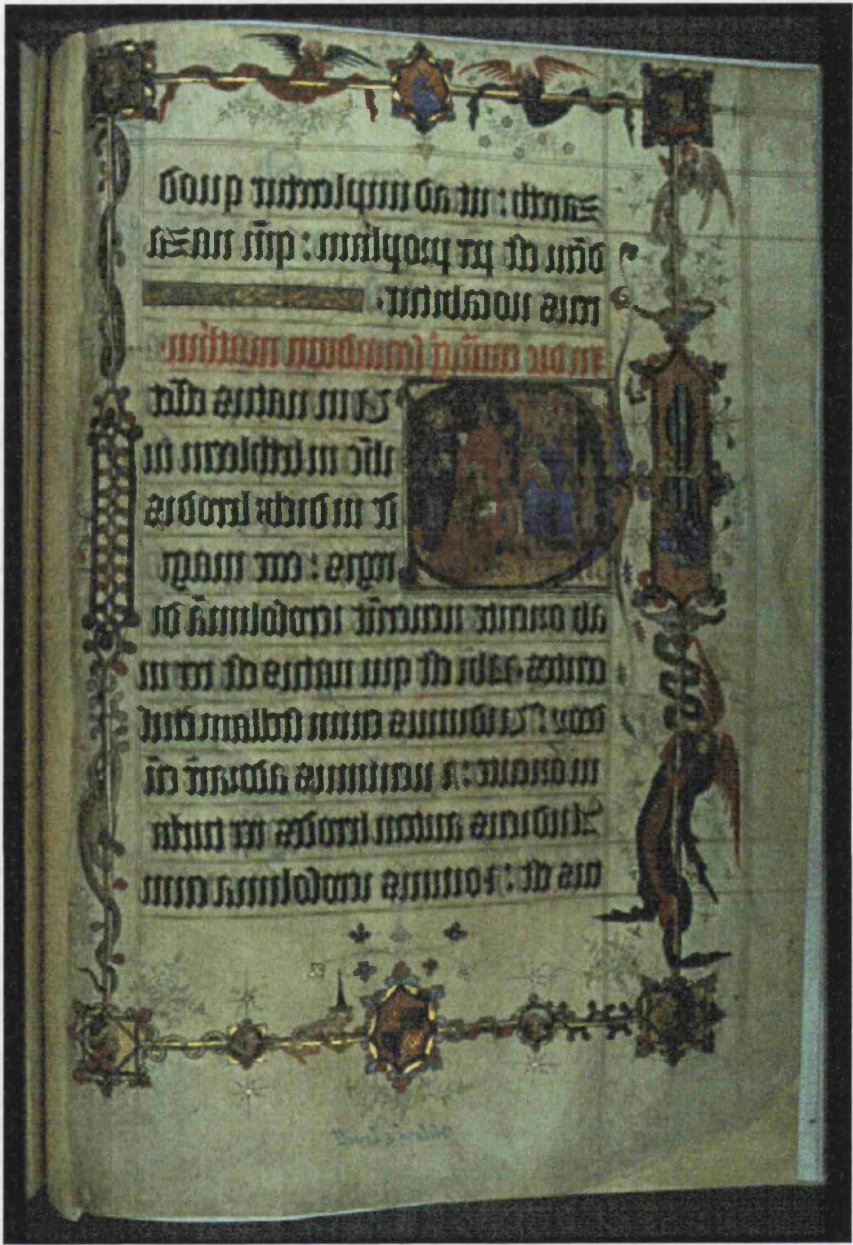 zareth: ut adimpleretur quod
dcm̄ est per prophetam: qm̄ naza
reus uocabitur.
in die secundum
Cum natus esset
ihc in bethleem iu
de in dieb; herodis
regis: ecce magi
ab oriente uenerūt ierosolimā di
centes. ubi est qui natus est rex iu
deor? Uidimus enim stellam eius
in oriente: ⁊ uenimus adorare eū
Audiens autem herodes rex turba
tus est: ⁊ omnis ierosolima cum